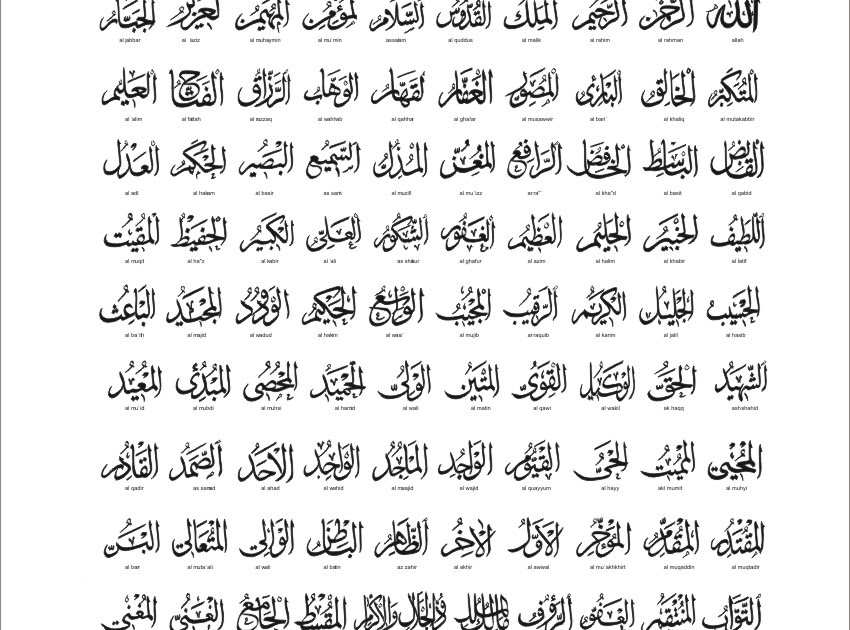 الله الرحمن الرحيم الملك القدوس السلام المؤمن المهيمن العزيز الجبار
al jabbar al 'aziz al muhaymin al mu'min assalam al quddus al malik al rahim al rahman allah
المتكبر الخالق البارئ المصور الغفار القهار الوهاب الرزاق الفتاح العليم
al 'alim al fattah al razzaq al wahhab al qahhar al ghafar al musawwir al bari' al khaliq al mutakabbir
القابض الباسط الخافض الرافع المعز المذل السميع البصير الحكم العدل
al adl al hakam al basir as sami al muzill al mu'izz ar ra"' al kha"d al basit al qabid
اللطيف الخبير الحليم العظيم الغفور الشكور العلي الكبير الحفيظ المقيت
al muqit al ha"z al kabir al 'ali as shakur al ghafur al azim al halim al khabir al latif
الحسيب الجليل الكريم الرقيب المجيب الواسع الحكيم الودود المجيد الباعث
al ba'ith al majid al wadud al hakim al wasi' al mujib ar raquib al karim al jalil al hasib
الشهيد الحق الوكيل القوى المتين الولى الحميد المحصى المبدئ المعيد
al mu'id al mubdi al muhsi al hamid al wali al matin al qawi al wakil ak haqq ash shahid
المحيى المميت الحى القيوم الواجد الماجد الواحد الاحد الصمد القادر
al qadir as samad al ahad al wahid al maajid al wajid al quayyum al hayy akl mumit al muhyi
المقتدر المقدم المؤخر الاول الاخر الظاهر الباطن الوالى المتعالى البر
al barr al muta'ali al wali al batin az zahir al akhir al awwal al mu'akhkhirt al muqaddin al muqtadir
التواب المنتقم العفو الرؤوف مالك الملك ذوالجلال والاكرام المقسط الجامع الغنى المغنى